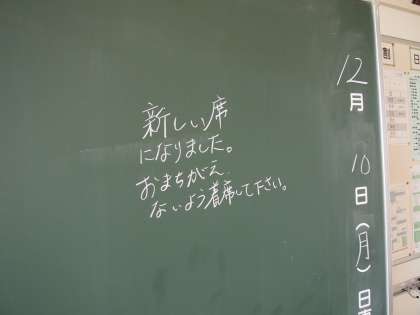 新しい席
になりました。
おまちがえ
ないよう着席して下さい。
12月10日(月)日直
割
日